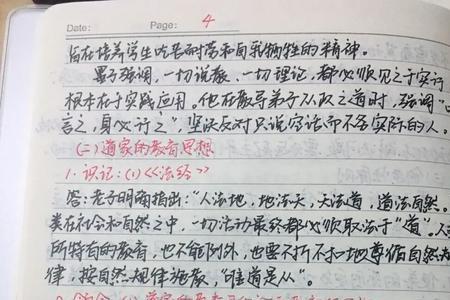 Date:   Page: 4
旨在培养学生吃苦耐劳和自我牺牲的精神。
墨子强调,一切说教、一切理论,都必须见之于实行
根本在于实践应用。他在教导弟子从政之道时,强调“口
言之,身必行之”,坚决反对只说空话而不务实际的人。
(二)道家的教育思想
1. 识记:(1)《法经》
答:老子明确指出:“人法地,地法天,天法道,道法自然。
类在社会和自然之中,一切活动最终都必须取法于“道”。人
所特有的教育,也不能例外,也要不折不扣地尊循自然规
律,按自然规律施教,“唯道是从”。